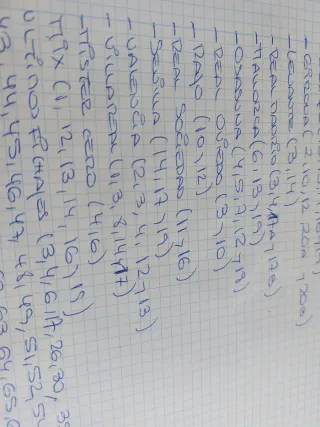 - GIRONA (2, 10, 12
- LEVANTE (3, 14)
- REAL MADRID (3, 4
- MALLORCA (6, 13, 19)
- OSASUNA (4, 5, 7, 12, 19)
- REAL OVIEDO (3, 10)
- RAYO (10, 12)
- REAL SOCIEDAD (11, 16)
- SEVILLA (14, 17, 19)
- VALENCIA (2, 3, 4, 12, 13)
- VILLAREAL (1, 3, 8, 14, 17)
- MISTER CERO (4, 6)
MIX (1, 12, 13, 14, 16, 19)
ULTIMOS FICHAJES (3, 4, 6, 17, 26, 30,
43, 44, 45, 46, 47, 48, 49, 51, 52, 5
63, 64, 65,